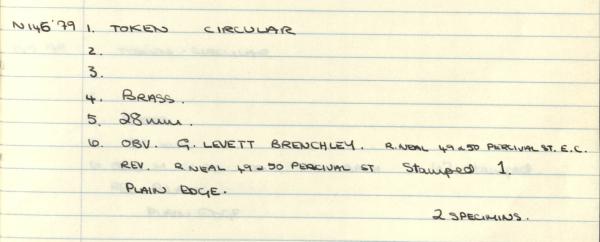 N145'79 1. TOKEN CIRCULAR
2.
3.
4. BRASS.
5. 28mm.
6. OBV. G. LEVETT BRENCHLEY. R. NEAL 49 & 50 PERCIVAL ST. E.C.
REV. R NEAL 49 & 50 PERCIVAL ST Stamped 1.
PLAIN EDGE.
2 SPECIMINS.